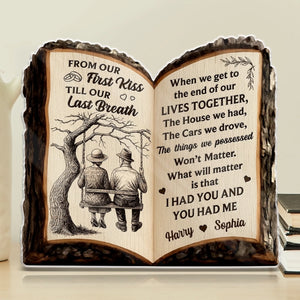 FROM OUR
First Kiss
TILL OUR
Last Breath
When we get to
the end of our
LIVES TOGETHER,
The House we had,
The Cars we drove,
The things we possessed
Won't Matter.
What will matter
is that
I HAD YOU AND
YOU HAD ME
Harry Sophia